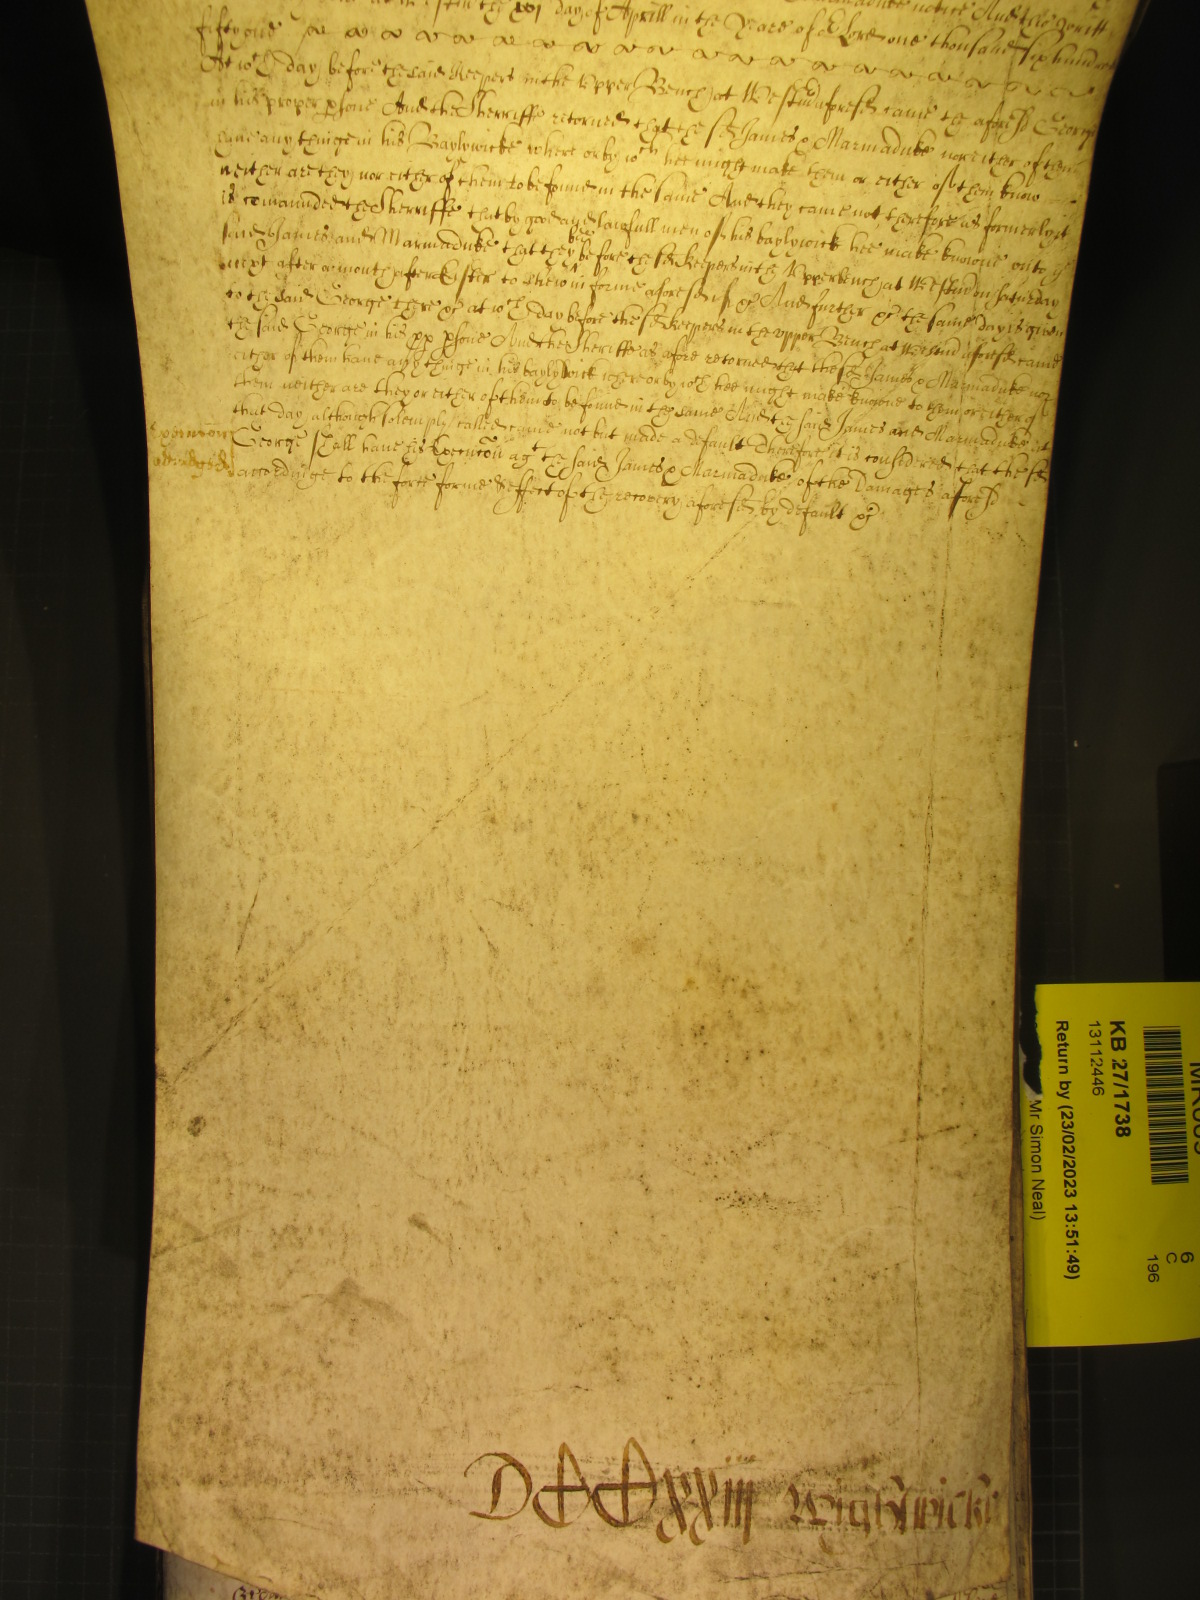 day of Aprill in the Yeare of or Lord one thousand six hundred
fifty one
At wch day before the said Keepers in the Upper Bench at Westm aforesd came the aforesd George
in his proper pson And the Sherriffe retorned that the sd James & Marmaduke nor either of them
any thinge in his Baylywicke where or by wch hee might make them or either of them know
neither are they nor either of them to be found in the same And they came not therefore as formerly it
is comaunded the Sherriffe that by good and lawfull men of his baylywick hee make knowne unto ye
said James and Marmaduke that they bee before the sd keepers in the Upper bench at Westm on Saturday
next after a month after Easter to shew in forme aforesd if &c And further &c the same day is given
to the said George there &c at wch day before the sd keepers in the upper Bench at Westm aforesd came
the said George in his pp psone And the Sheriffe as afore retorned that the sd James & Marmaduke nor
either of them have any thinge in his baylywick where or by wch hee might make knowne to them or either of
them neither are they or either of them to be found in the same And the said James and Marmaduke at
that day although solemply called came not but made a default Therefore it is considered that the sd
George shall have his Execucon agt the said James & Marmaduke of the Damages aforesd
accordinge to the force forme & effect of the recovery aforesd by default &c
Execucon
DCCCxxiiii Wightwicke
KB 27/1738
13112446
Return by (23/02/2023 13:51:49)
Mr Simon Neal)
6
C
196